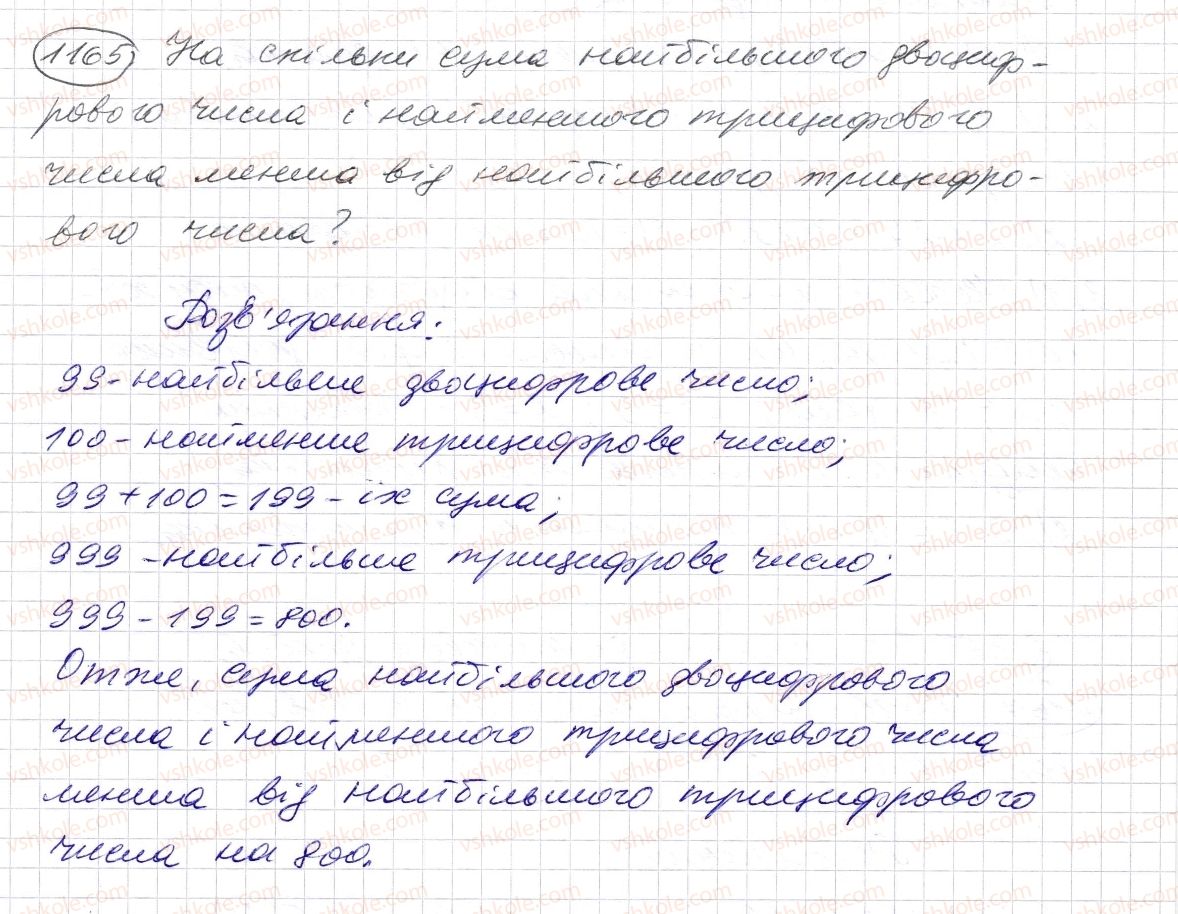 1165) На скільки сума найбільшого двоциф-
рового числа і найменшого трицифрового
числа менша від найбільшого трицифро-
вого числа?
Розв'язання:
99 - найбільше двоцифрове число;
100 - найменше трицифрове число;
99 + 100 = 199 - їх сума;
999 - найбільше трицифрове число;
999 - 199 = 800.
Отже, сума найбільшого двоцифрового
числа і найменшого трицифрового числа
менша від найбільшого трицифрового
числа на 800.